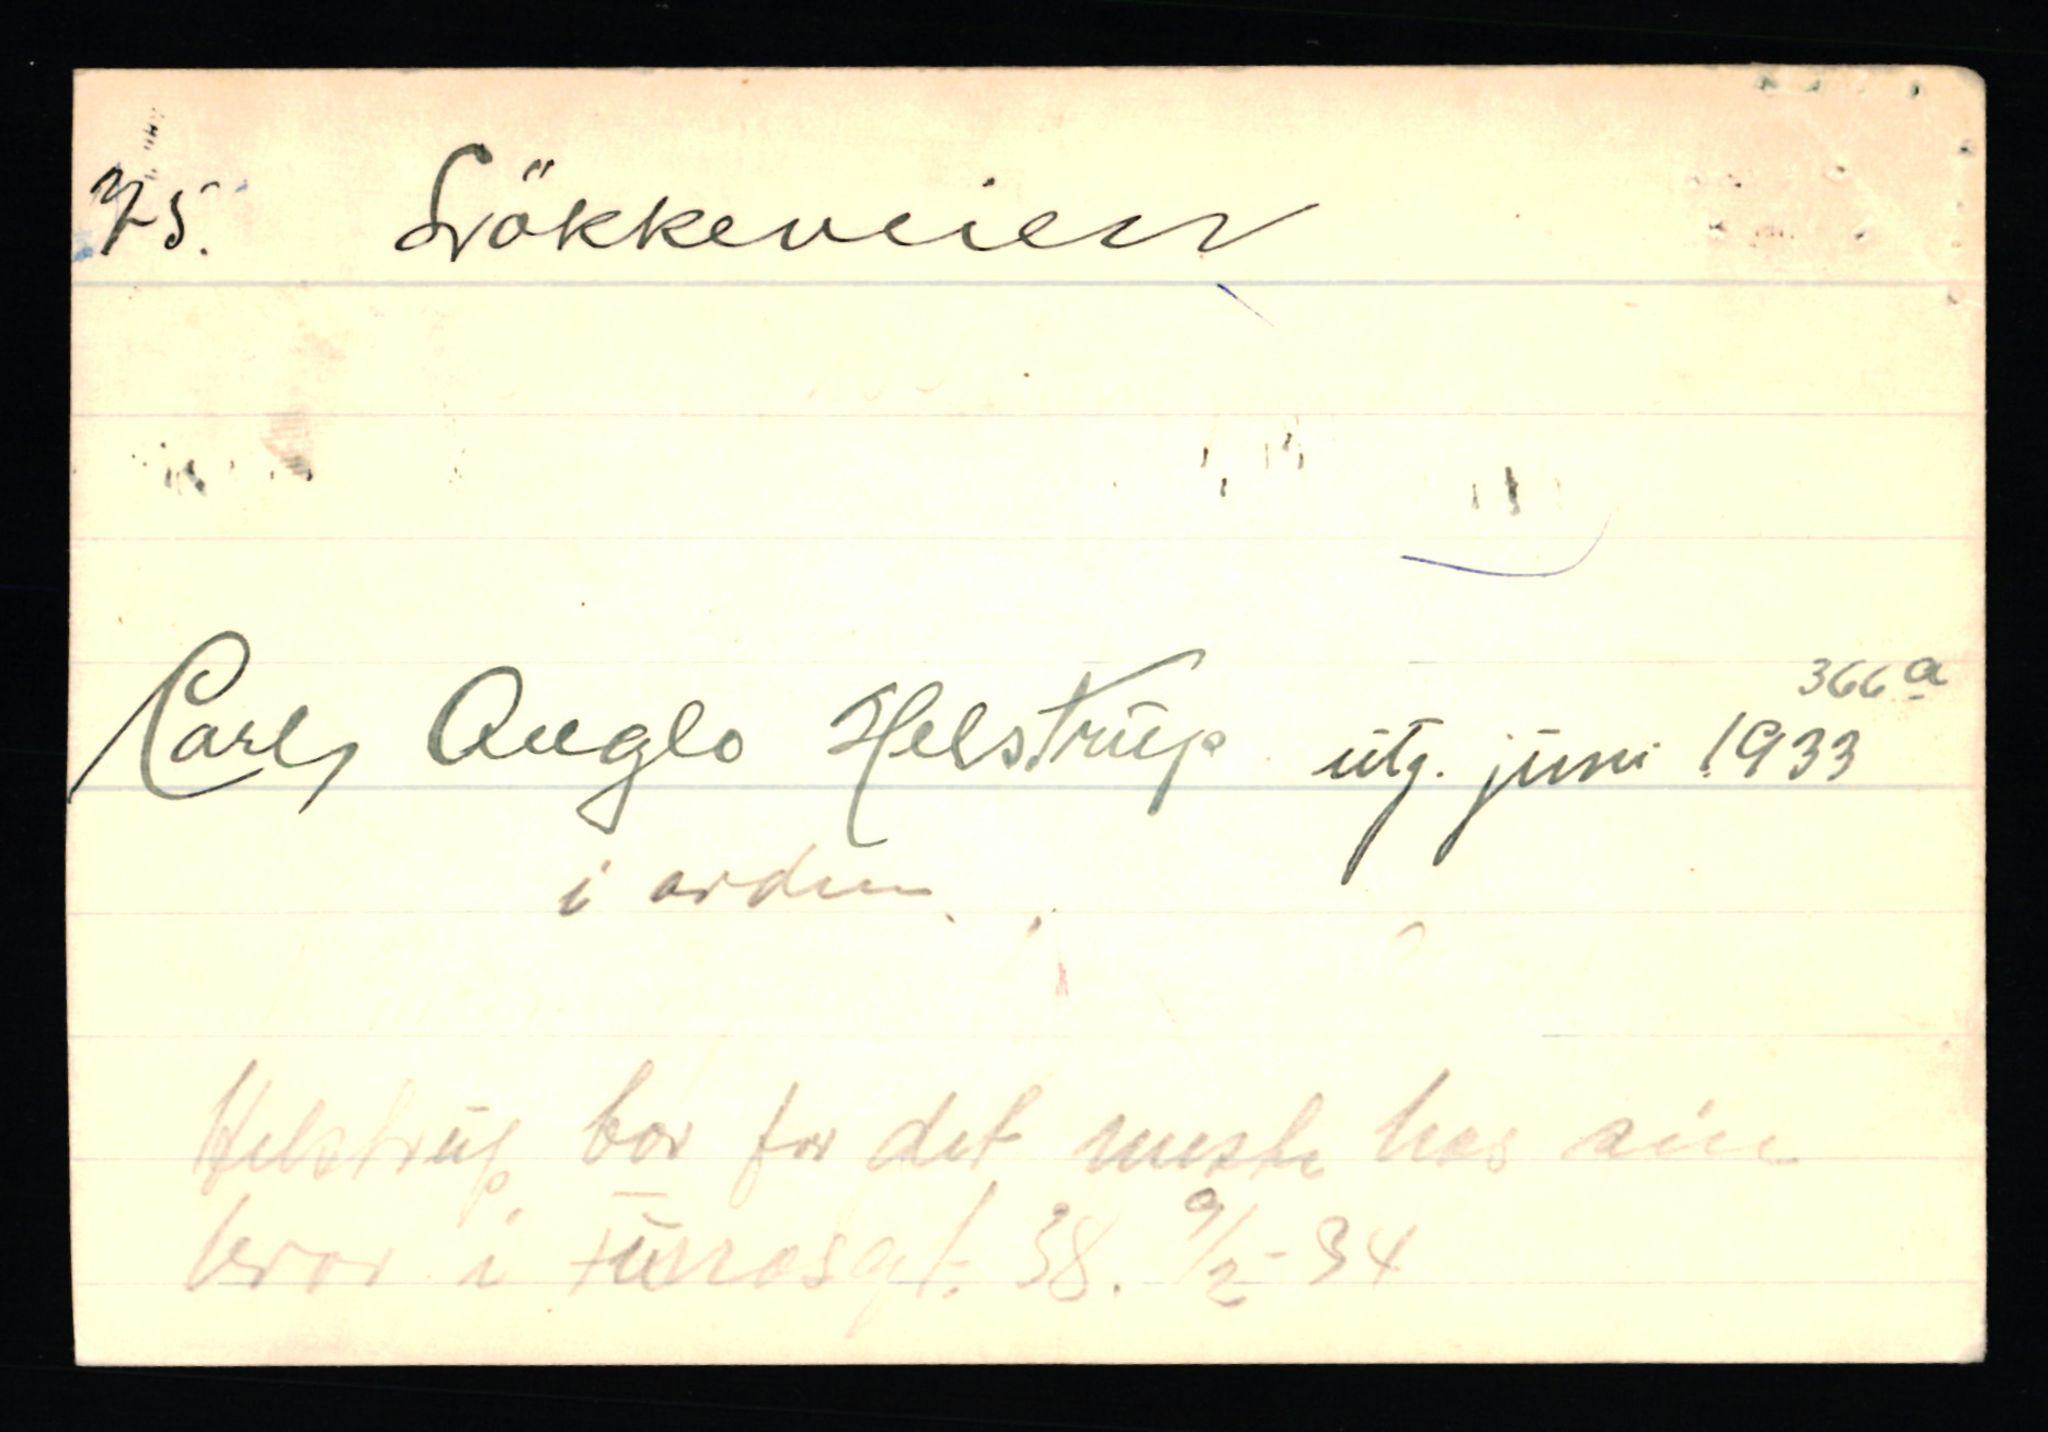 75. Lökkeveien
366 a
Carl Anglo Helstrup utg. juni 1933
i orden.
Helstrup bor for det meste hos sin
bror i Furrasgt. 38. 9/2-34